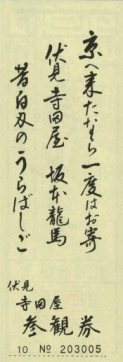 京へ来たなら一度はお寄り
伏見寺田屋 坂本龍馬
昔白刃のうらばしご
伏見
寺田屋
参観券
10 № 203005